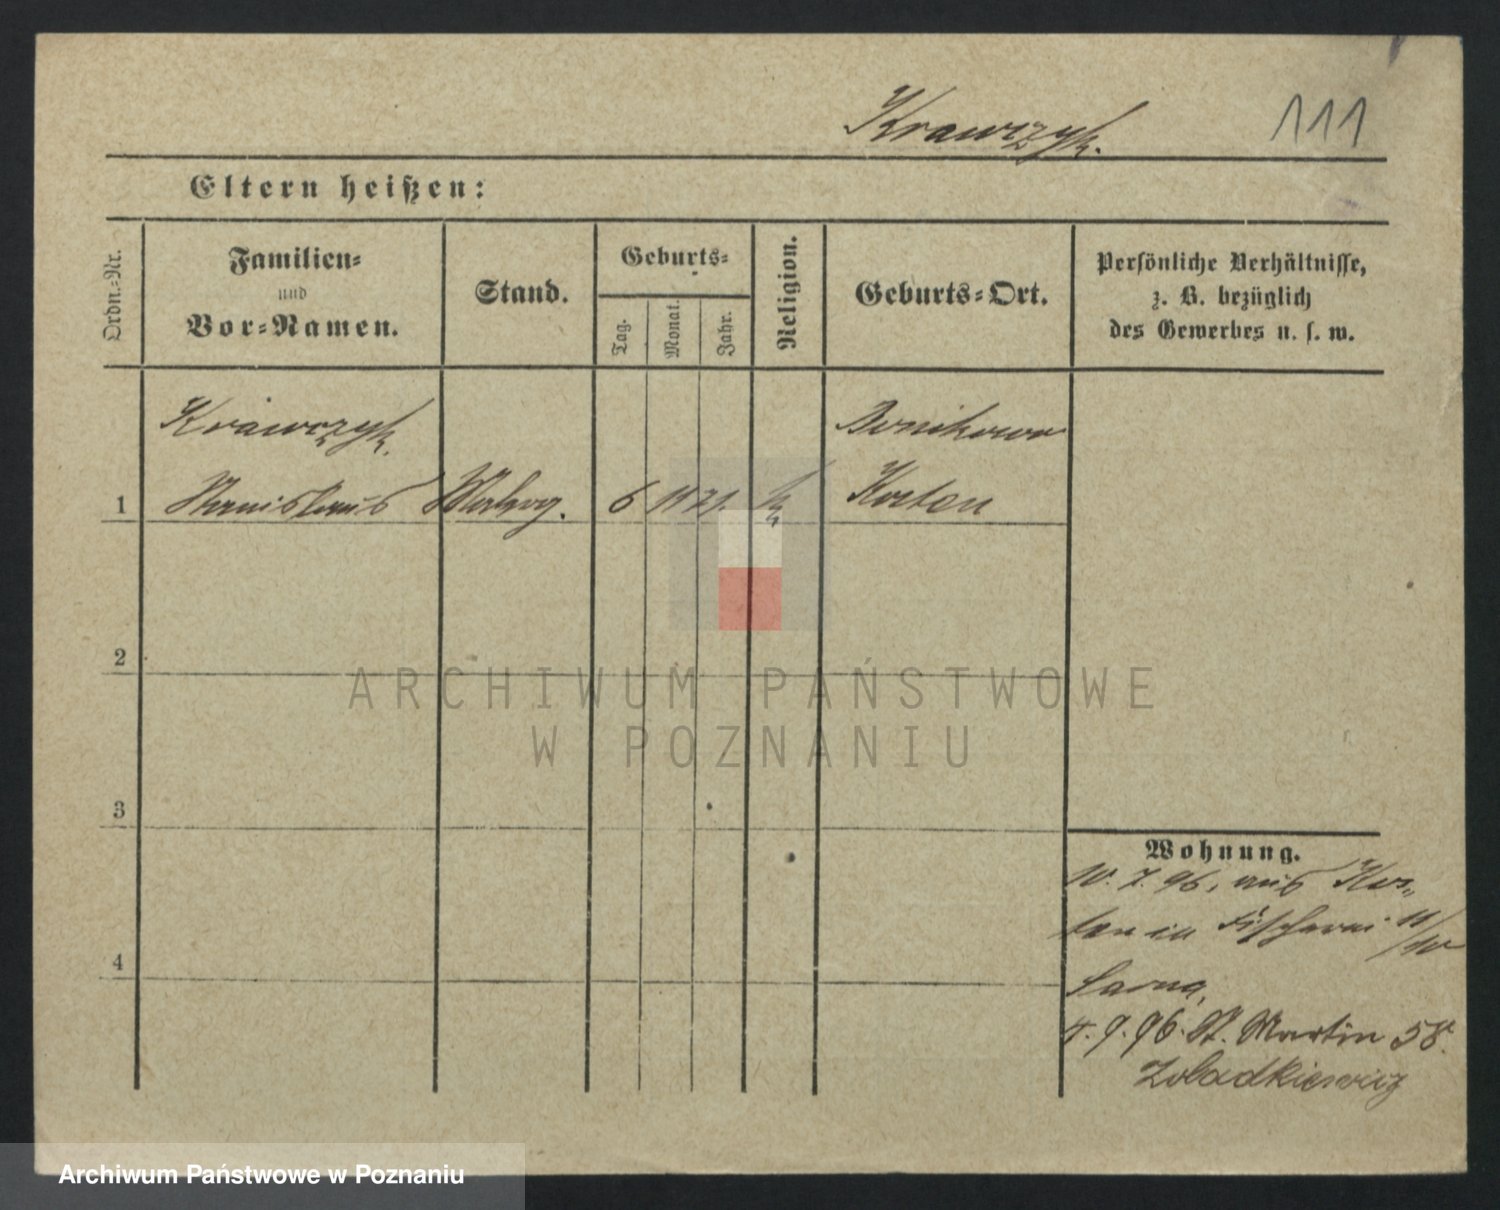 Krawczyk.
111
Eltern heißen:
Ordn.-Nr.
Familien-
und
Vor-Namen.
Stand.
Geburts-
Tag.
Monat.
Jahr.
Religion.
Geburts-Ort.
Persönliche Verhältnisse,
z. B. bezüglich
des Gewerbes u. s. w.
Krawczyk.
1
Stanislaus
6
11
71.
k
Bonikowo
Kosten
2
3
4
Wohnung.
10. 7. 96. aus Kos-
ten in Fischerei 11/10
4. 9. 96. St. Martin 58.
ARCHIWUM PAŃSTWOWE
W POZNANIU
Archiwum Państwowe w Poznaniu